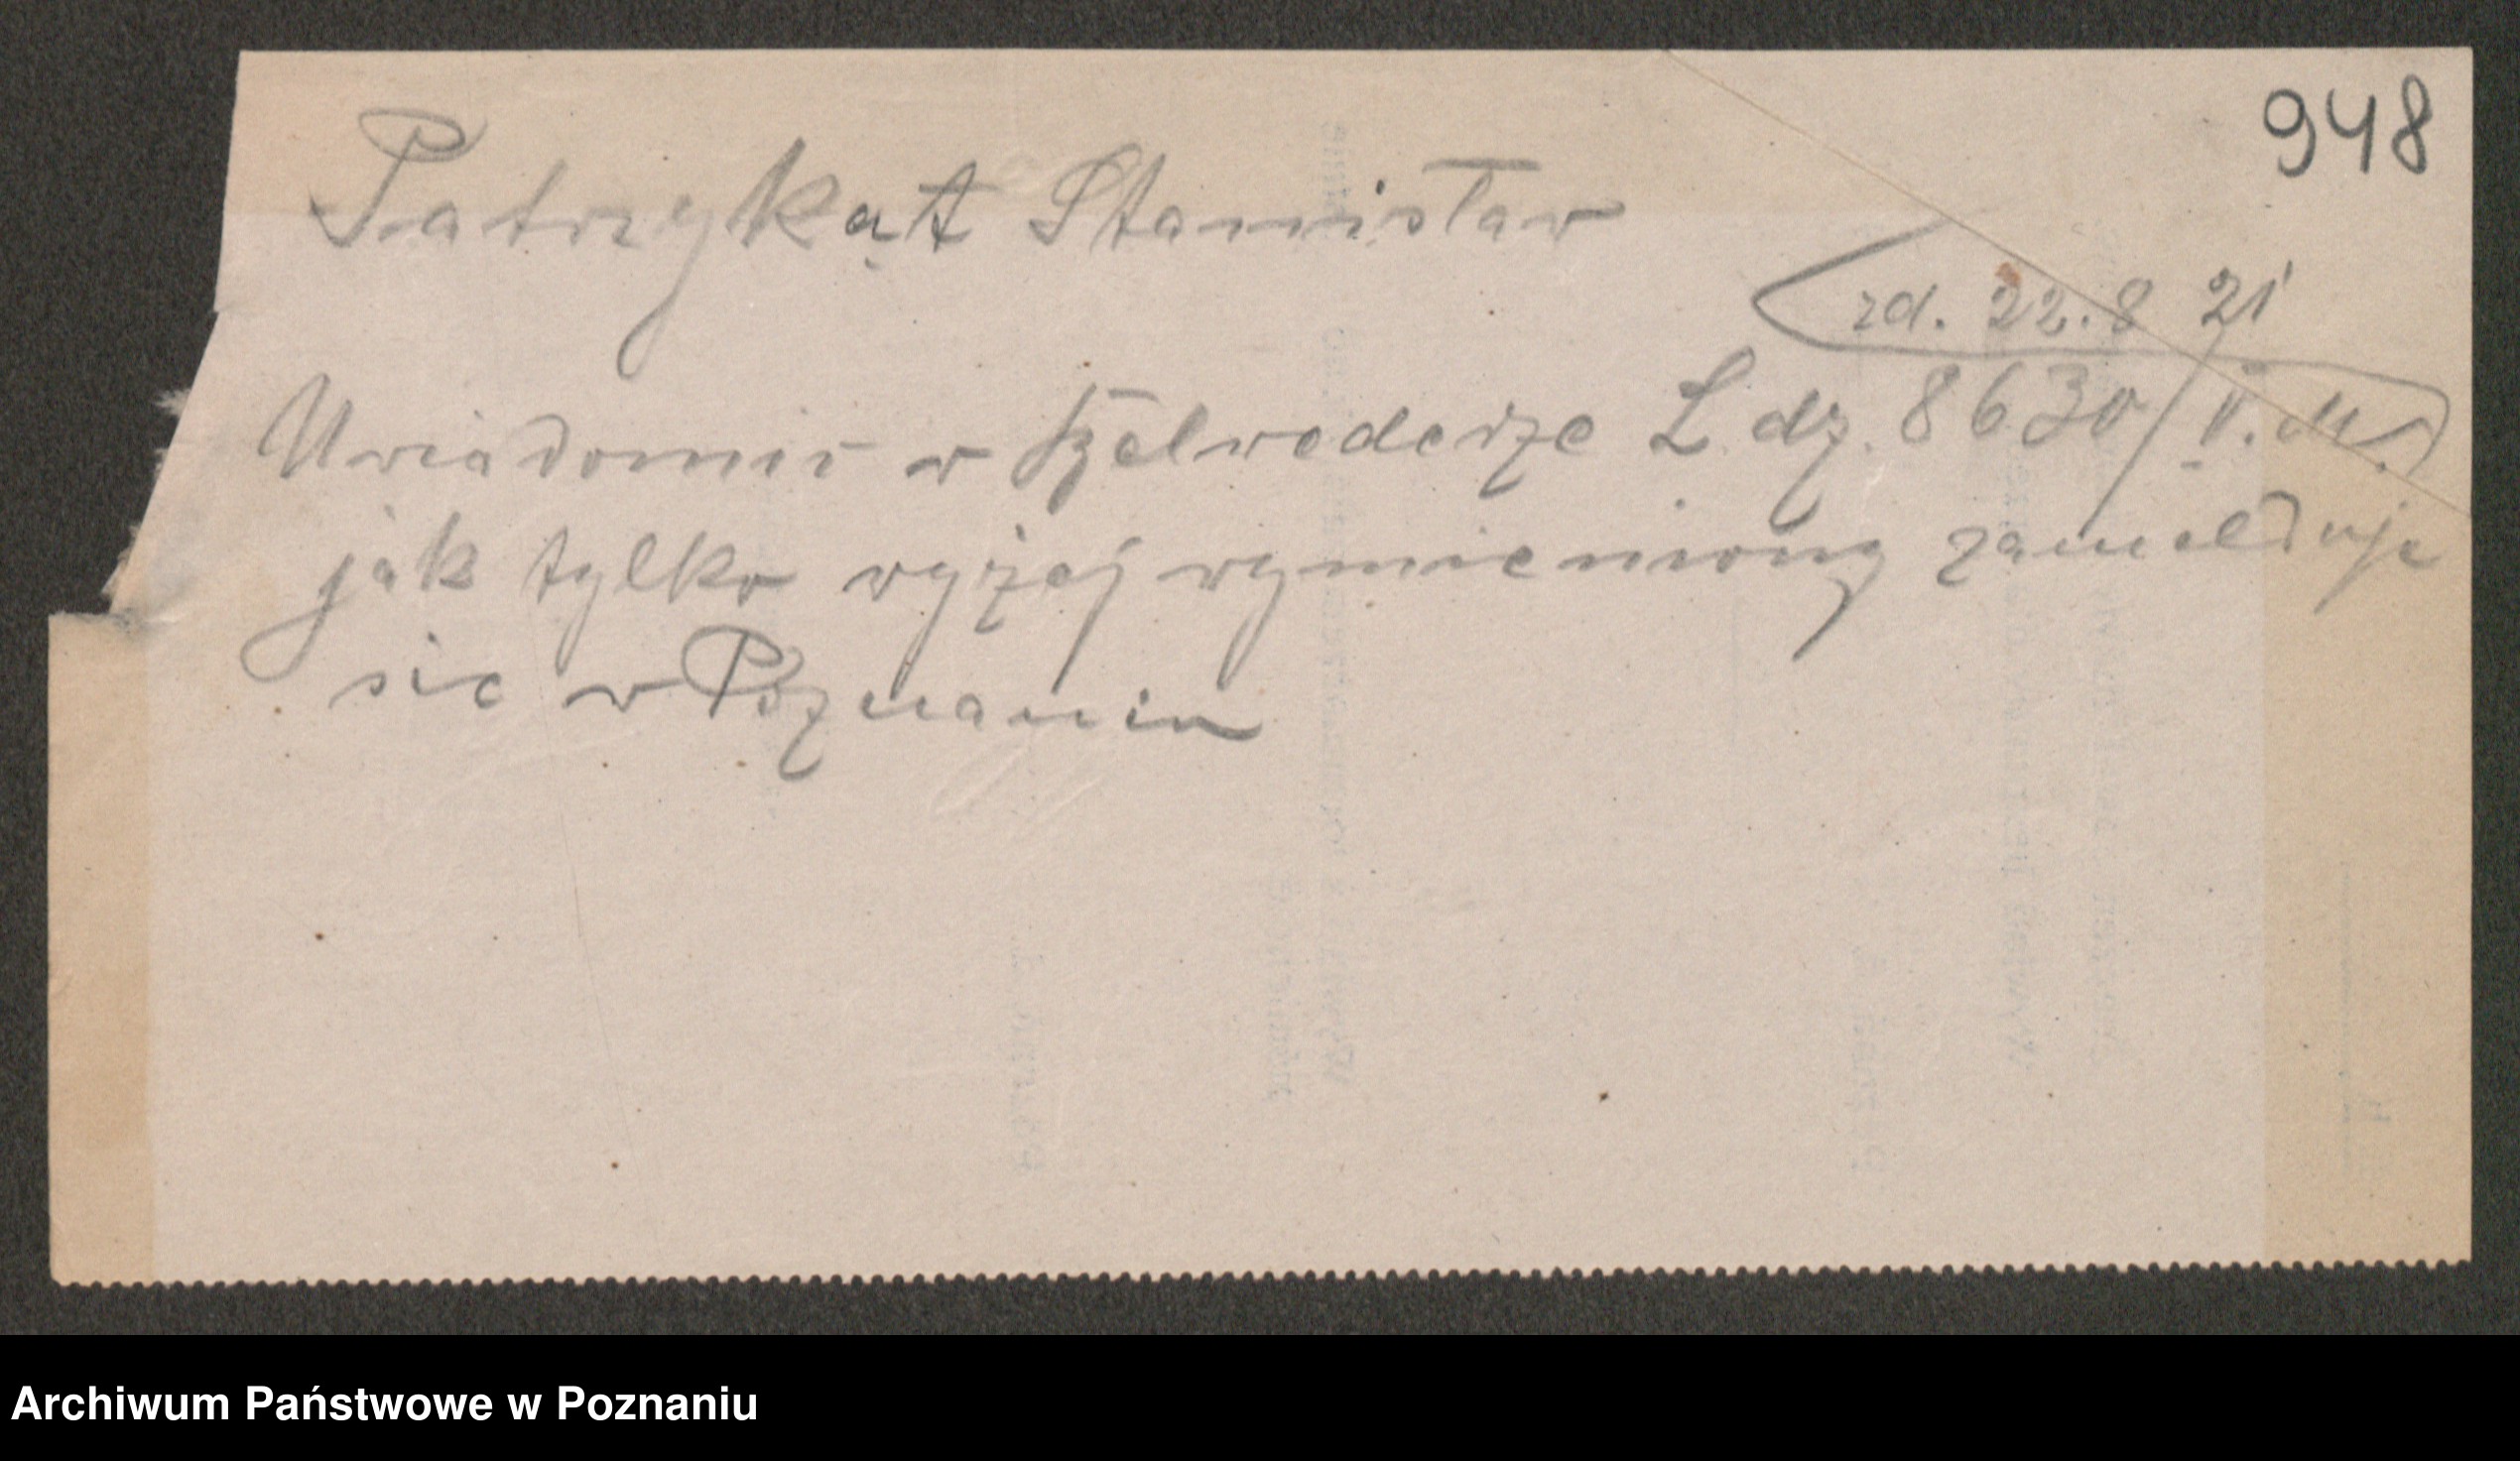 948
Patrzykąt Stanisław
zd. 22.8 21
Uwiadomić w Belwederze L. dz. 8630/V. M.
jak tylko wyżej wymieniony zamelduje
sie w Poznaniu
Archiwum Państwowe w Poznaniu